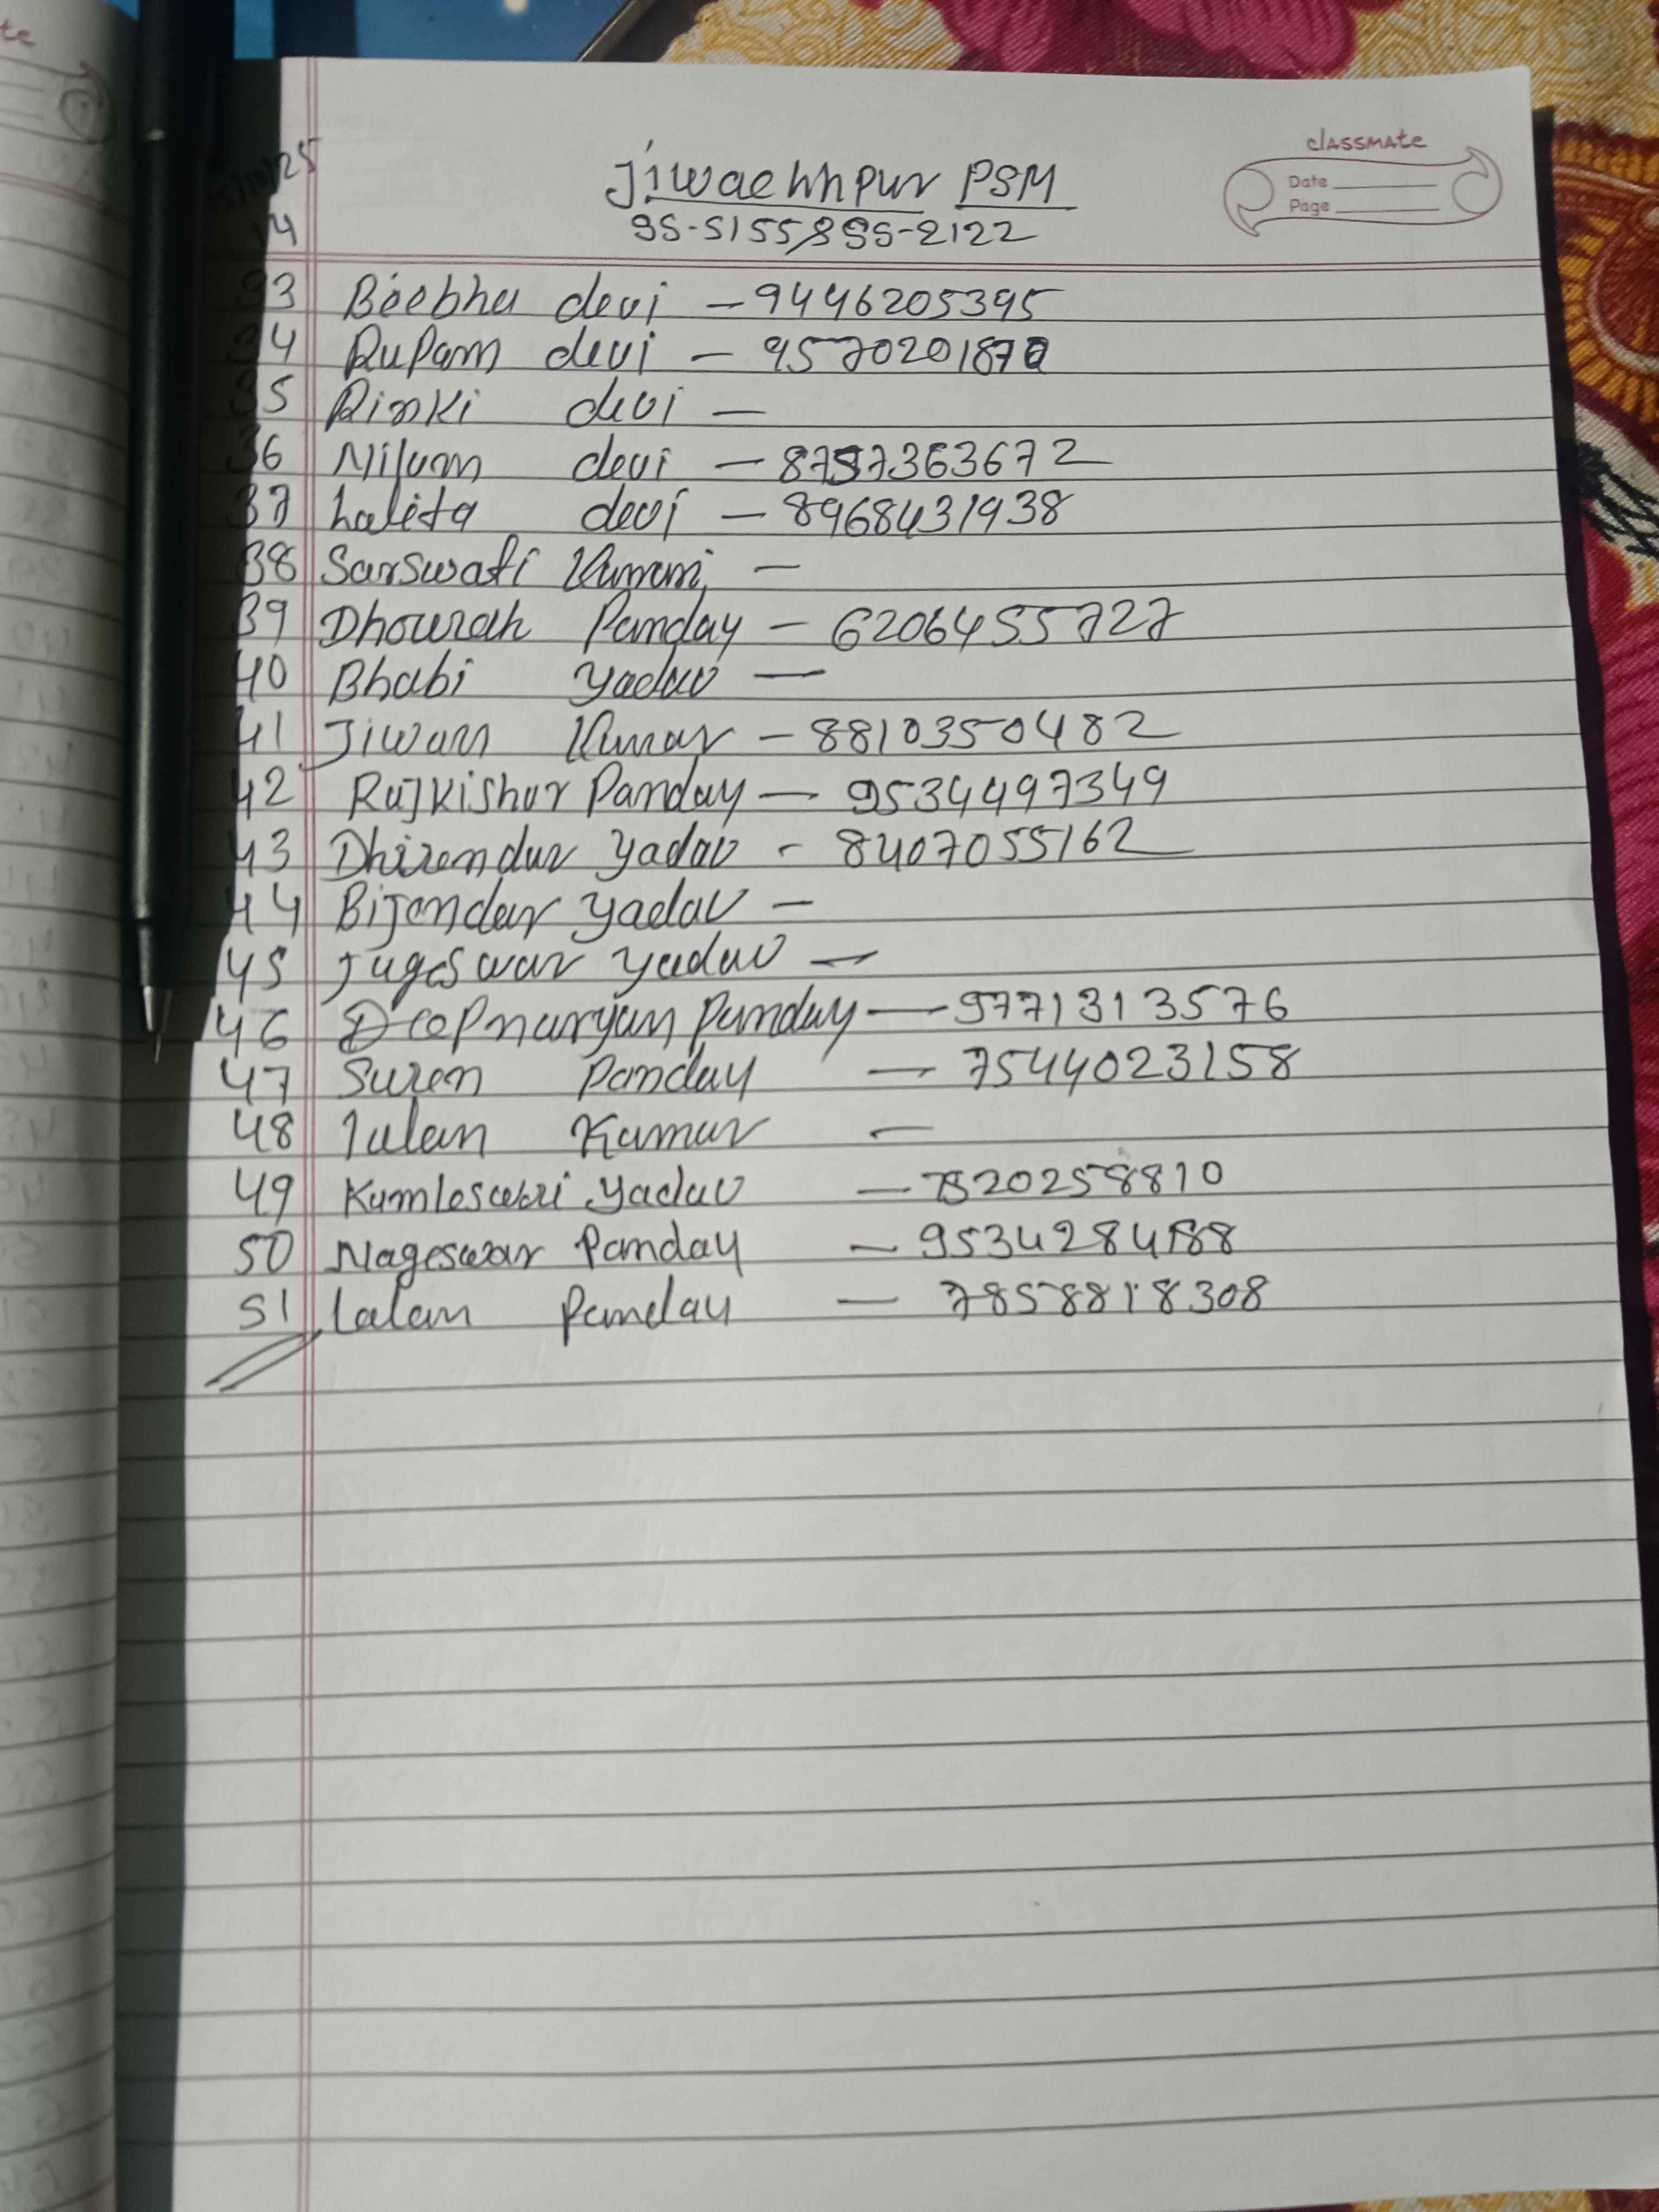 te
classmate
Date
Page
15/10/25
Jiwaehhpur PSM
4
9S-5155/SSS-2122
33 Beebha devi - 9446205395
34 Rupam devi - 9570201870
35 Rinki devi -
36 Nilum devi - 8757363672
37 Lalita devi - 8968431938
38 Sarswati Kumari -
39 Dhourah Panday - 6206455727
40 Bhabi yadav -
41 Jiwan Kumar - 8810350482
42 Rajkishor Panday - 9534497349
43 Dhirendur yadav - 8407055162
44 Bijendar yadav -
45 Jugeswar yadav -
46 Deepnaryan Panday - 9771313576
47 Suren Panday - 7544023158
48 lalan Kumar -
49 Kumleswari yadav - 7520258810
50 Nageswar Panday - 9534284188
51 lalan Panday - 7858818308